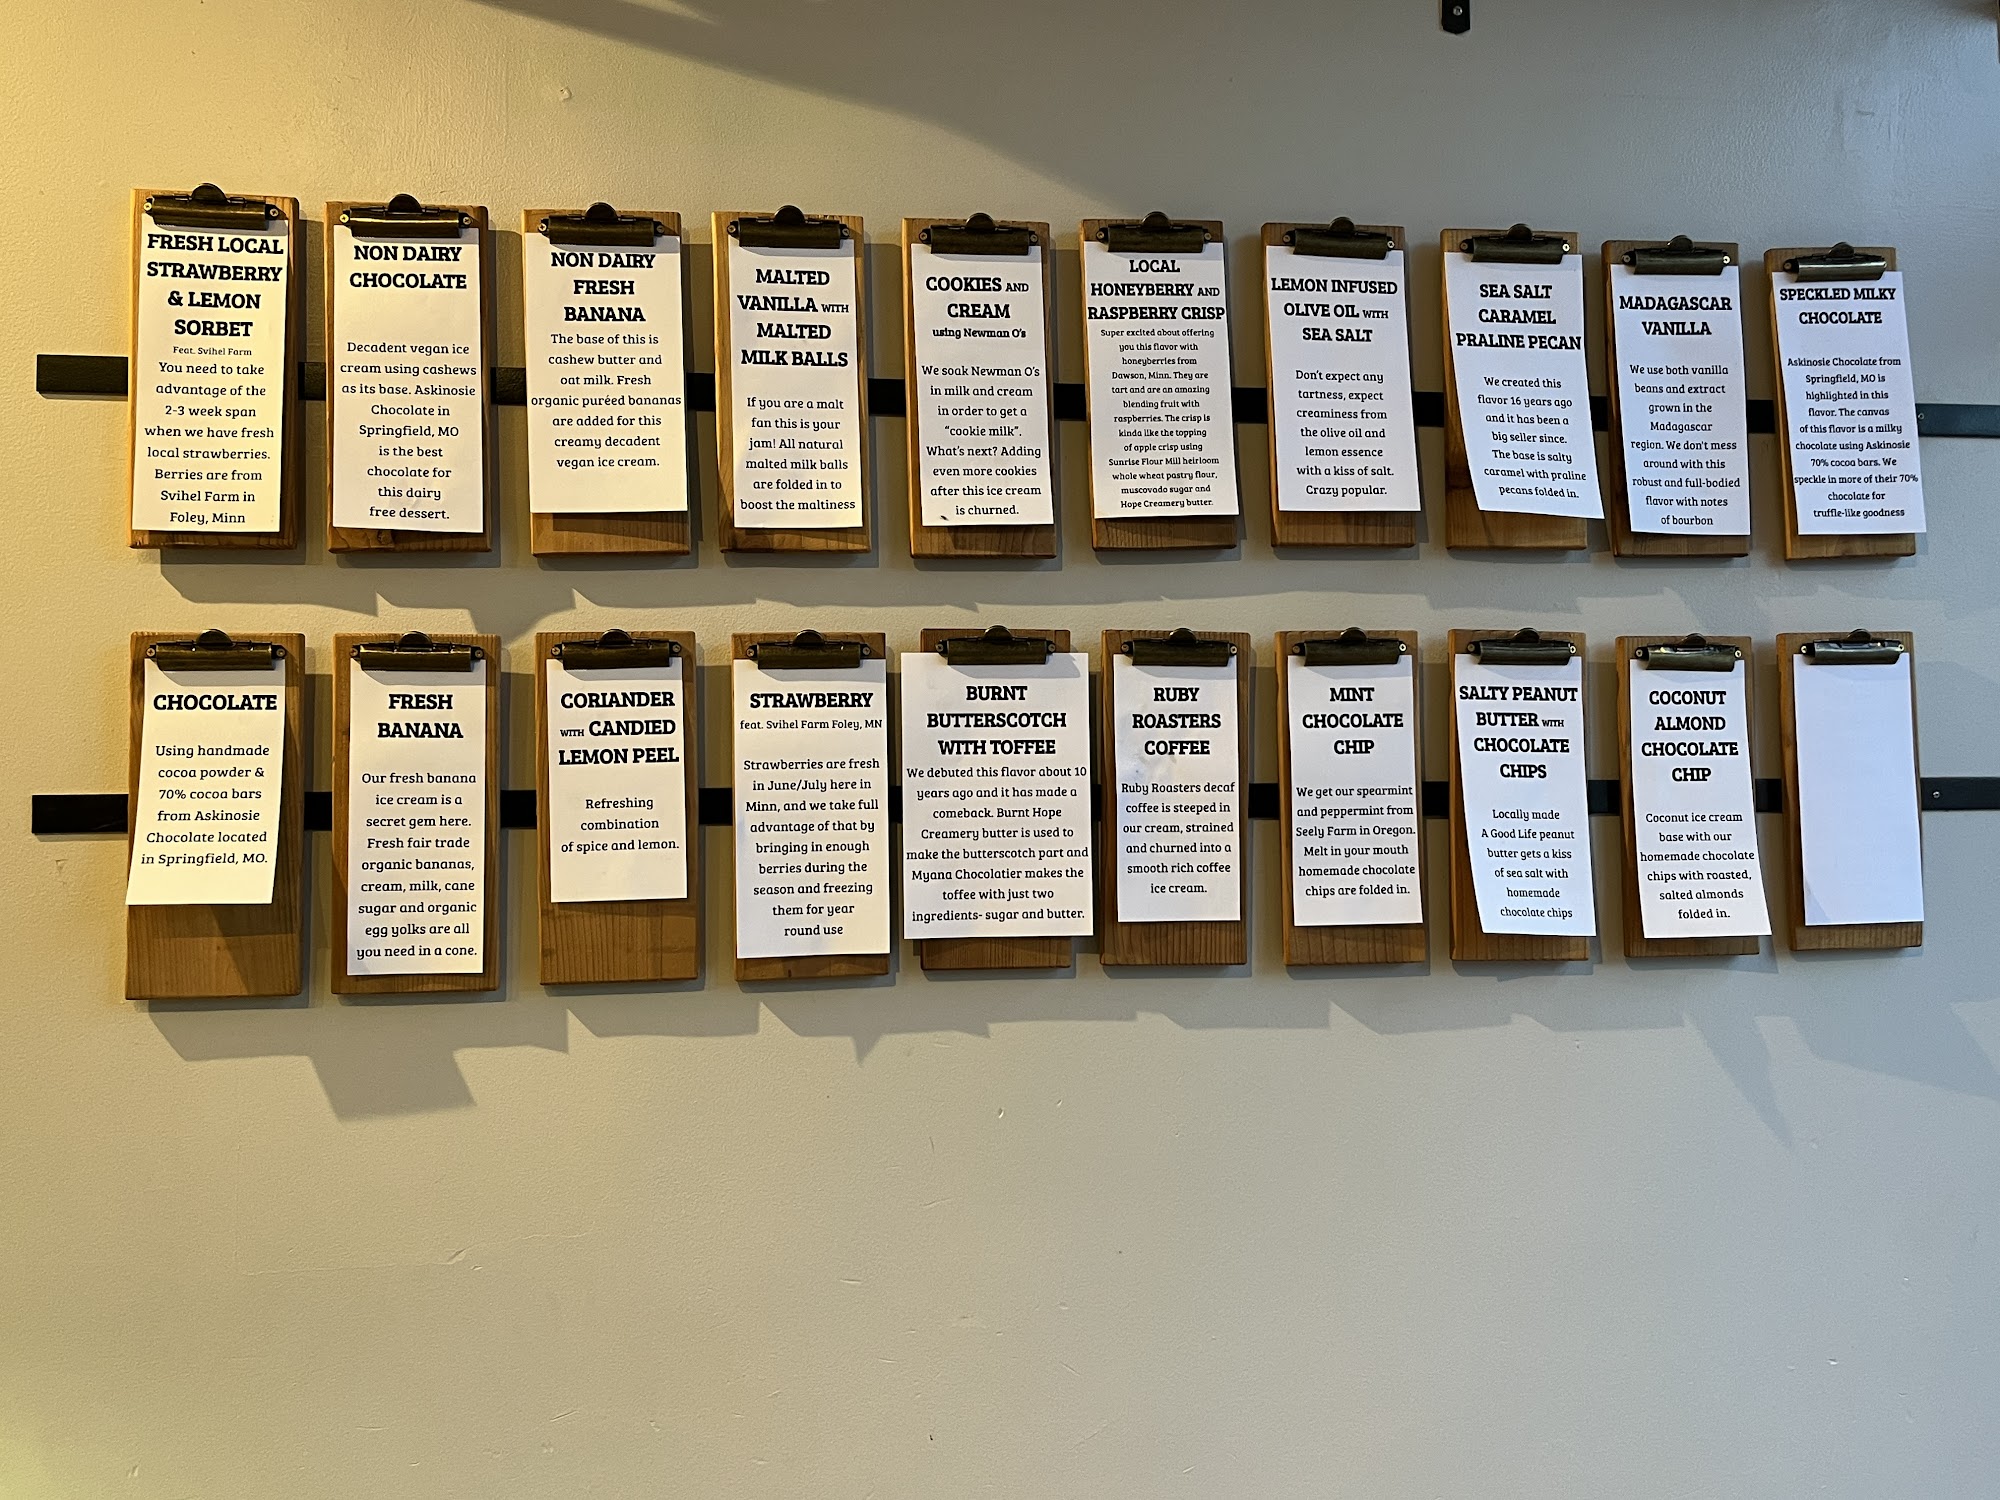 FRESH LOCAL
STRAWBERRY
& LEMON
SORBET
Feat. Svihel Farm
You need to take
advantage of the
2-3 week span
when we have fresh
local strawberries.
Berries are from
Svihel Farm in
Foley, Minn
NON DAIRY
CHOCOLATE
Decadent vegan ice
cream using cashews
as its base. Askinosie
Chocolate in
Springfield, MO
is the best
chocolate for
this dairy
free dessert.
NON DAIRY
FRESH
BANANA
The base of this is
cashew butter and
oat milk. Fresh
organic puréed bananas
are added for this
creamy decadent
vegan ice cream.
MALTED
VANILLA WITH
MALTED
MILK BALLS
If you are a malt
fan this is your
jam! All natural
malted milk balls
are folded in to
boost the maltiness
COOKIES AND
CREAM
using Newman O's
We soak Newman O's
in milk and cream
in order to get a
"cookie milk".
What's next? Adding
even more cookies
after this ice cream
is churned.
LOCAL
HONEYBERRY AND
RASPBERRY CRISP
Super excited about offering
you this flavor with
honeyberries from
Dawson, Minn. They are
tart and are an amazing
blending fruit with
raspberries. The crisp is
kinda like the topping
of apple crisp using
Sunrise Flour Mill heirloom
whole wheat pastry flour,
muscovado sugar and
Hope Creamery butter.
LEMON INFUSED
OLIVE OIL WITH
SEA SALT
Don't expect any
tartness, expect
creaminess from
the olive oil and
lemon essence
with a kiss of salt.
Crazy popular.
SEA SALT
CARAMEL
PRALINE PECAN
We created this
flavor 16 years ago
and it has been a
big seller since.
The base is salty
caramel with praline
pecans folded in.
MADAGASCAR
VANILLA
We use both vanilla
beans and extract
grown in the
Madagascar
region. We don't mess
around with this
robust and full-bodied
flavor with notes
of bourbon
SPECKLED MILKY
CHOCOLATE
Askinosie Chocolate from
Springfield, MO is
highlighted in this
flavor. The canvas
of this flavor is a milky
chocolate using Askinosie
70% cocoa bars. We
speckle in more of their 70%
chocolate for
truffle-like goodness
CHOCOLATE
Using handmade
cocoa powder &
70% cocoa bars
from Askinosie
Chocolate located
in Springfield, MO.
FRESH
BANANA
Our fresh banana
ice cream is a
secret gem here.
Fresh fair trade
organic bananas,
cream, milk, cane
sugar and organic
egg yolks are all
you need in a cone.
CORIANDER
WITH CANDIED
LEMON PEEL
Refreshing
combination
of spice and lemon.
STRAWBERRY
feat. Svihel Farm Foley, MN
Strawberries are fresh
in June/July here in
Minn, and we take full
advantage of that by
bringing in enough
berries during the
season and freezing
them for year
round use
BURNT
BUTTERSCOTCH
WITH TOFFEE
We debuted this flavor about 10
years ago and it has made a
comeback. Burnt Hope
Creamery butter is used to
make the butterscotch part and
Myana Chocolatier makes the
toffee with just two
ingredients- sugar and butter.
RUBY
ROASTERS
COFFEE
Ruby Roasters decaf
coffee is steeped in
our cream, strained
and churned into a
smooth rich coffee
ice cream.
MINT
CHOCOLATE
CHIP
We get our spearmint
and peppermint from
Seely Farm in Oregon.
Melt in your mouth
homemade chocolate
chips are folded in.
SALTY PEANUT
BUTTER WITH
CHOCOLATE
CHIPS
Locally made
A Good Life peanut
butter gets a kiss
of sea salt with
homemade
chocolate chips
COCONUT
ALMOND
CHOCOLATE
CHIP
Coconut ice cream
base with our
homemade chocolate
chips with roasted,
salted almonds
folded in.